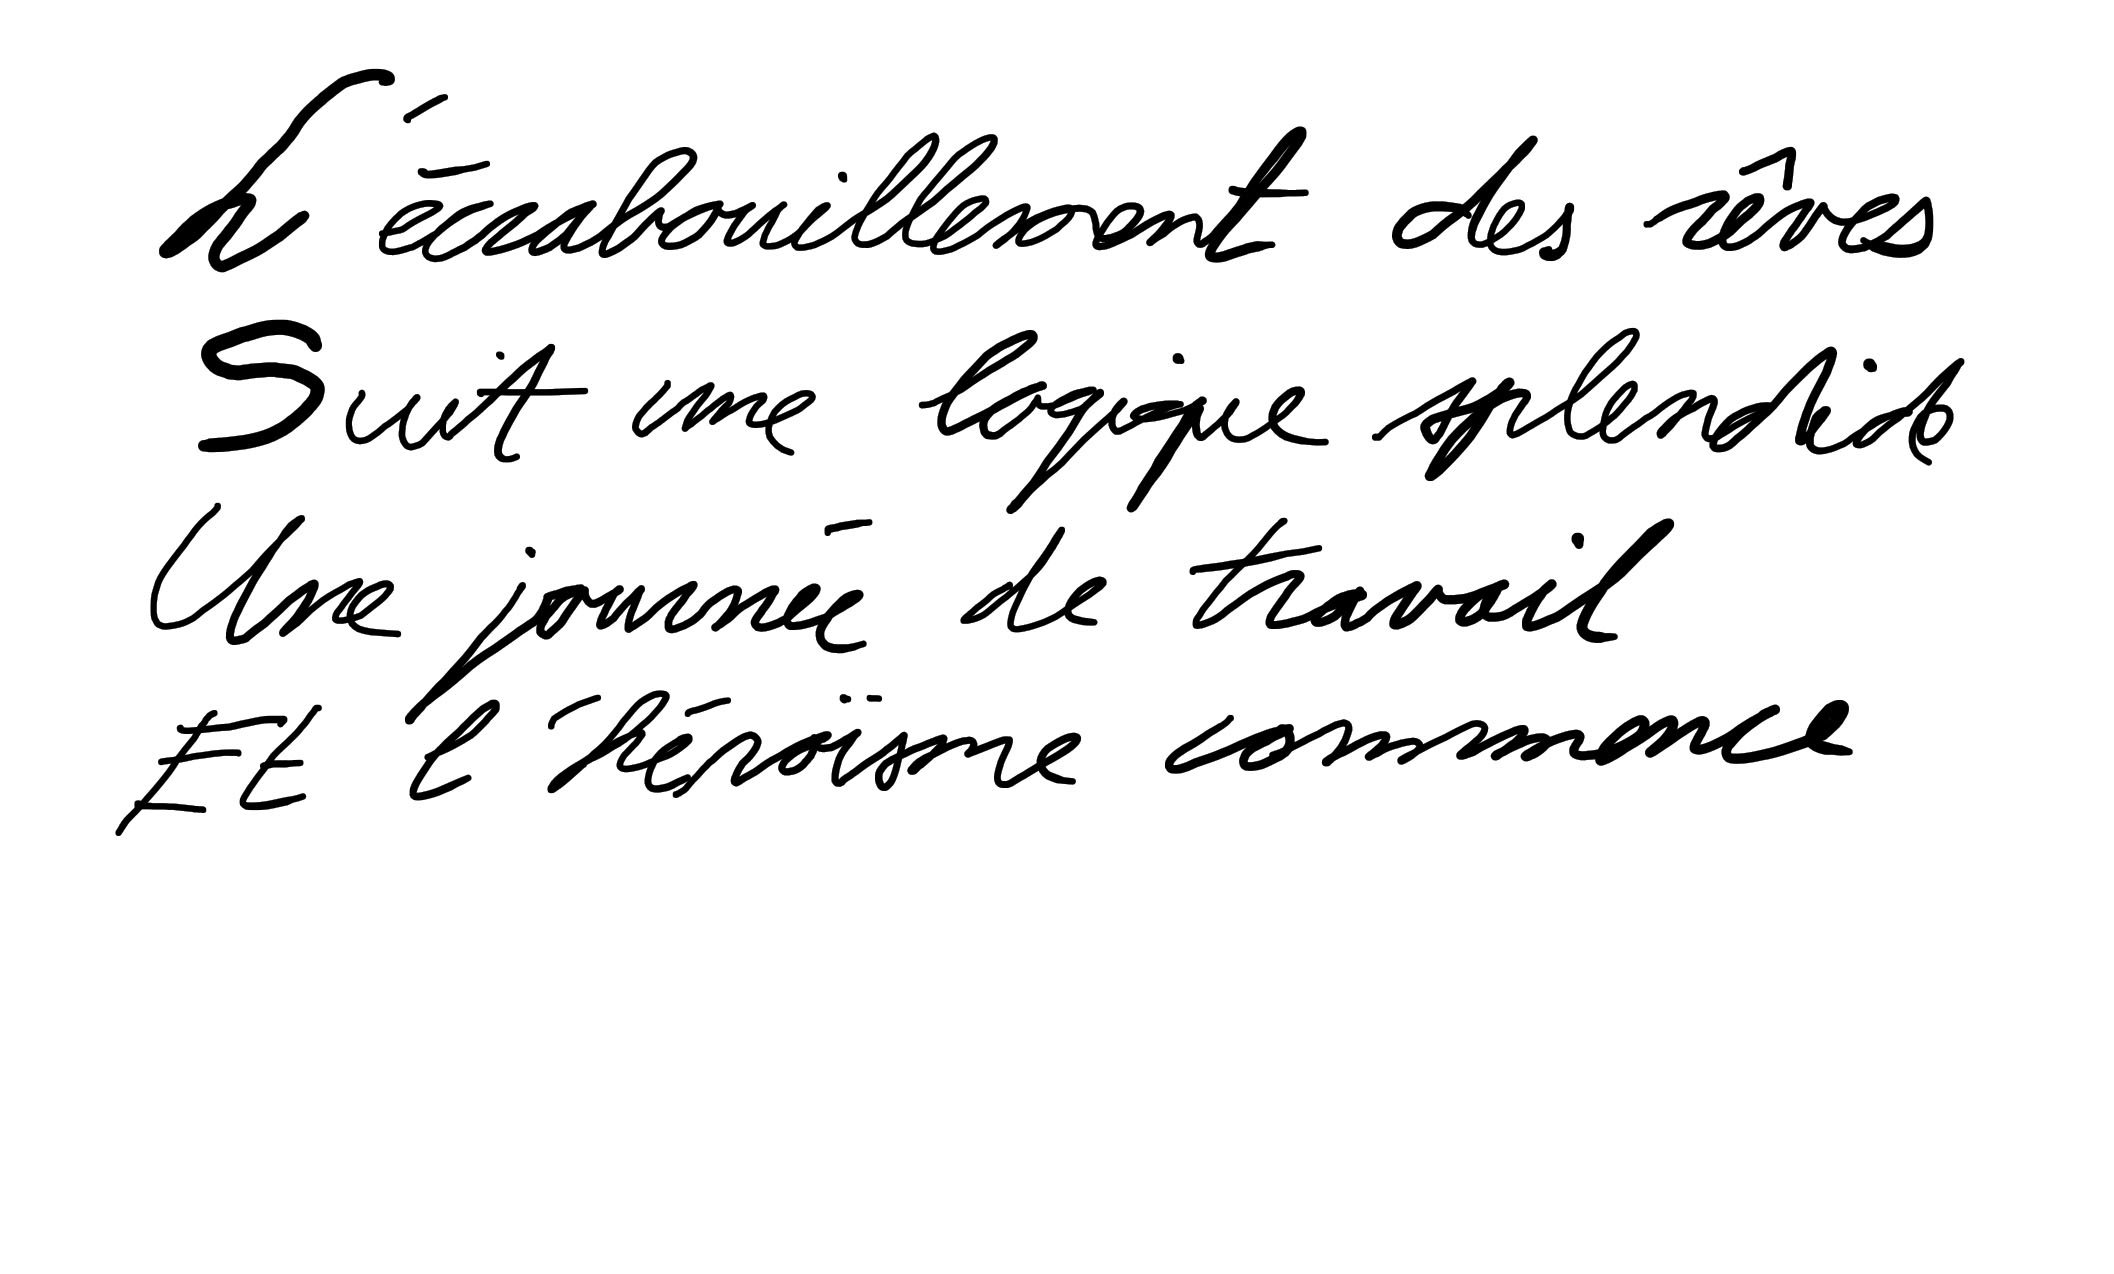 L'écrabouillement des rêves
Suit une logique splendide
Une journée de travail
Et l'héroïsme commence